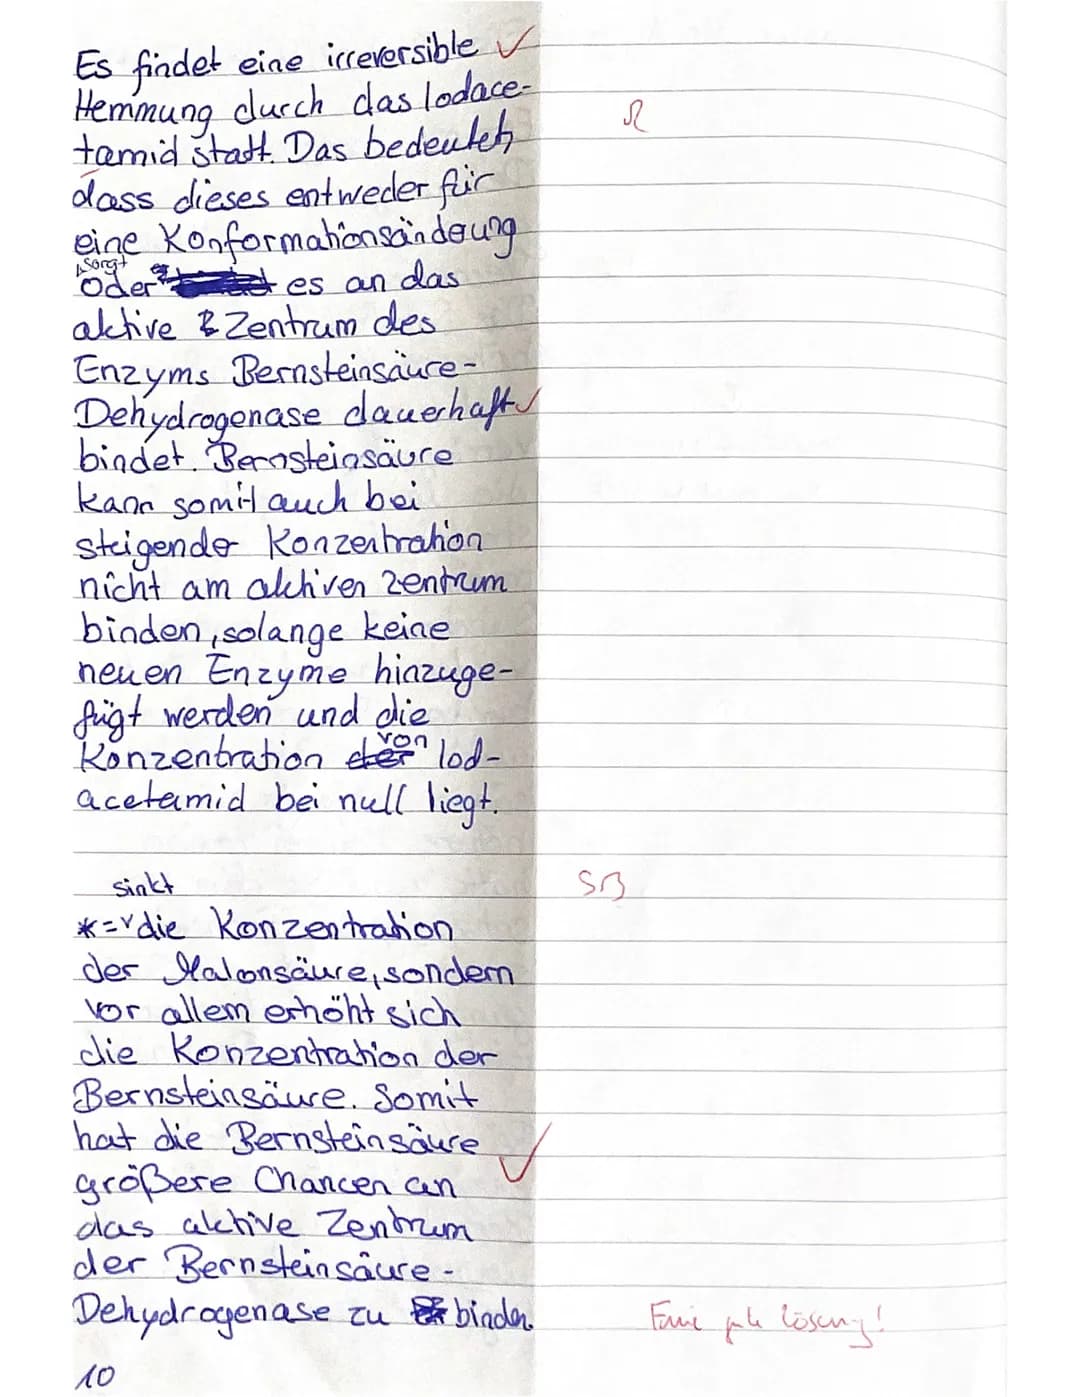 Es findet eine irreversible ✓
Hemmung durch das Iodace-
tamid statt. Das bedeutet, R
dass dieses entweder für
eine Konformationsänderung
sorgt
oder es an das
aktive Zentrum des
Enzyms Bernsteinsäure-
Dehydrogenase dauerhaft ✓
bindet. Bernsteinsäure
kann somit auch bei
steigender Konzentration
nicht am aktiven Zentrum
binden, solange keine
neuen Enzyme hinzuge-
fügt werden und die
von
Konzentration der Iod-
acetamid bei null liegt.
sinkt SB
*= die Konzentration
der Malonsäure, sondern
vor allem erhöht sich
die Konzentration der
Bernsteinsäure. Somit
hat die Bernsteinsäure ✓
größere Chancen an
das aktive Zentrum
der Bernsteinsäure-
Dehydrogenase zu binden.
Eine gute Lösung!
10